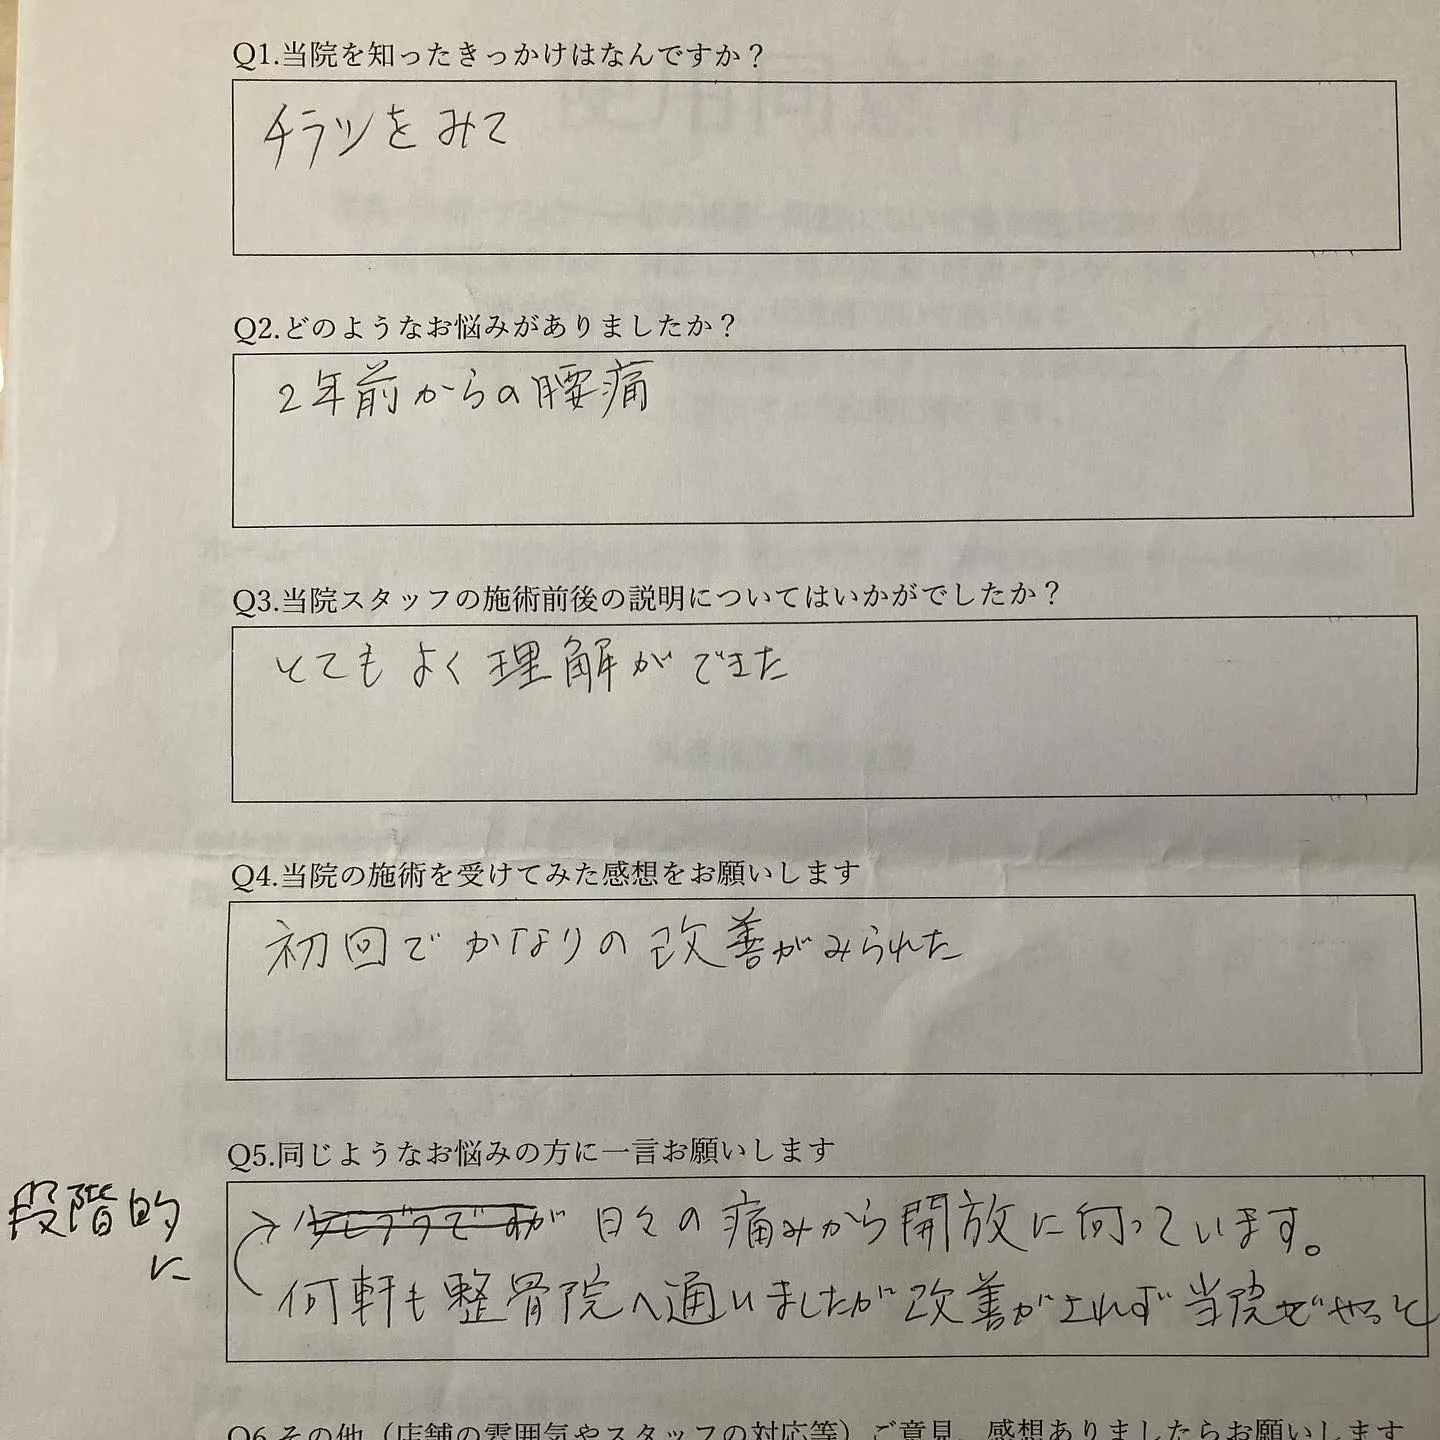 Q1.当院を知ったきっかけはなんですか？
チラシをみて
Q2.どのようなお悩みがありましたか？
2年前からの腰痛
Q3.当院スタッフの施術前後の説明についてはいかがでしたか？
とてもよく理解ができた
Q4.当院の施術を受けてみた感想をお願いします
初回でかなりの改善がみられた
Q5.同じようなお悩みの方に一言お願いします
段階的
に
日々の痛みから開放に向っています。
何軒も整骨院へ通いましたが改善がされず当院でやっと
Q6.その他（店舗の雰囲気やスタッフの対応等）ご意見、感想ありましたらお願いします